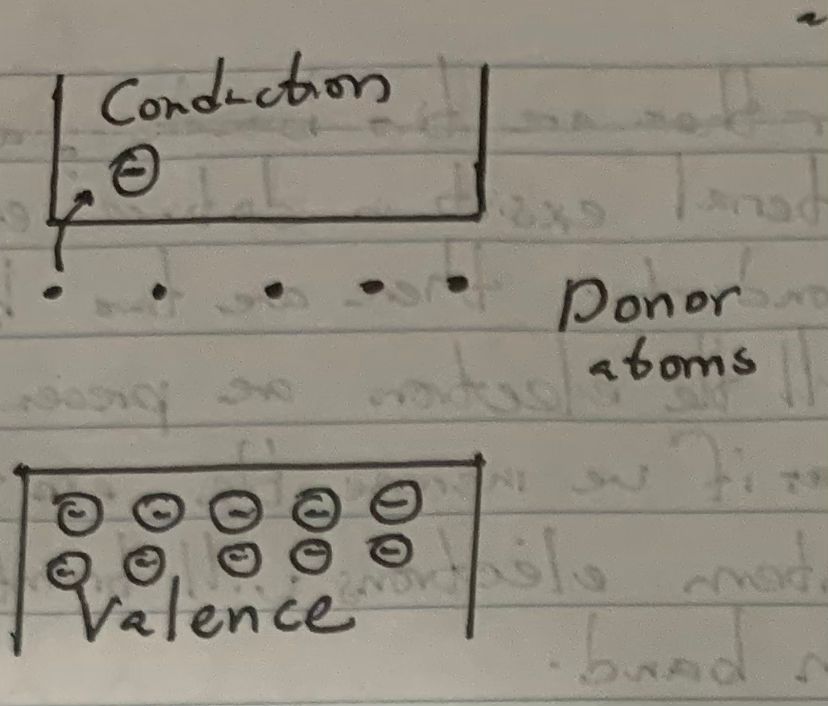 Conduction
⊖
Donor
atoms
⊖ ⊖ ⊖ ⊖ ⊖
⊖ ⊖ ⊖ ⊖ ⊖
Valence